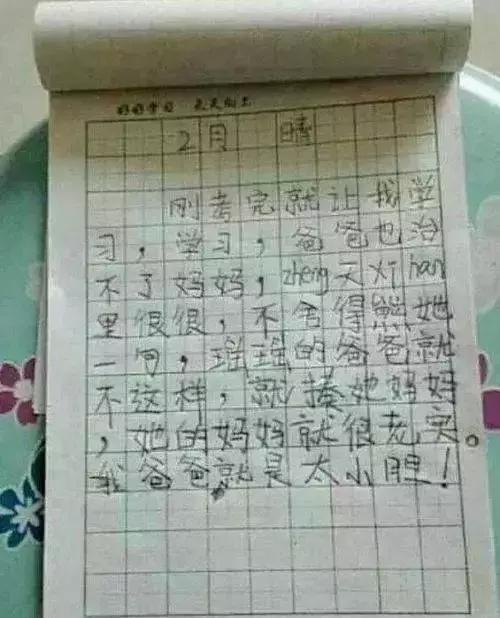 好好学习 天天向上
2月 晴
刚考完就让我学
习，学习，爸爸也治
不了妈妈，zheng天灯han
里很很，不舍得熊她
一句，瑶瑶的爸爸就
不这样，就揍她妈妈
，她的妈妈就很老实。
我爸爸就是太小胆！